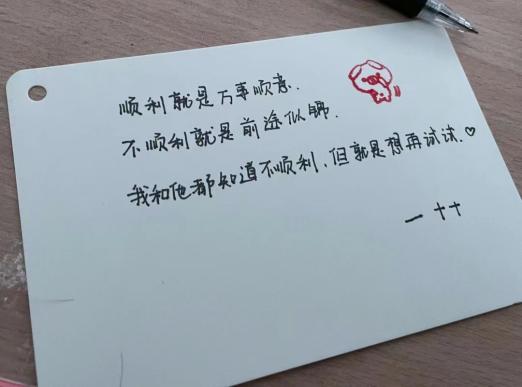 顺利就是万事顺意.
不顺利就是前途似锦.
我和他都知道不顺利,但就是想再试试.♡
一 十十